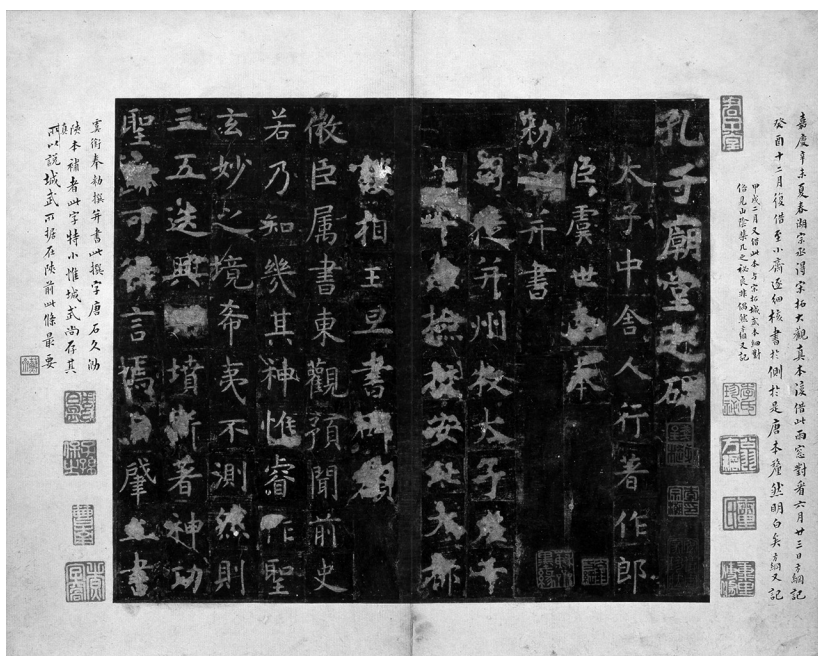 嘉慶辛未夏春湖宗丞得宋拓大觀真本復借此雨窓對看六月廿三日方綱記
癸酉十二月復借至小齋逐細核書於側於是唐本釐然明白矣方綱又記
甲戌二月又借此本與宋拓城武本細對
見山陰之秘良非偶然方綱又記
孔子廟堂之碑
太子中舍人行著作郎
臣虞世南奉
勑并書
司徒并州牧太子左千
牛率兼檢校安北大都
護相王旦書碑額
微臣屬書東觀預聞前史
若乃知幾其神惟睿作聖
玄妙之境希夷不測然則
三五迭興墳斯著神功
聖迹可得言焉自肇立書
虞銜奉勑撰并書此撰字唐石久泐
陜本補者此字特小惟城武尚存其
真
所以說城武所據在陜前此條最要